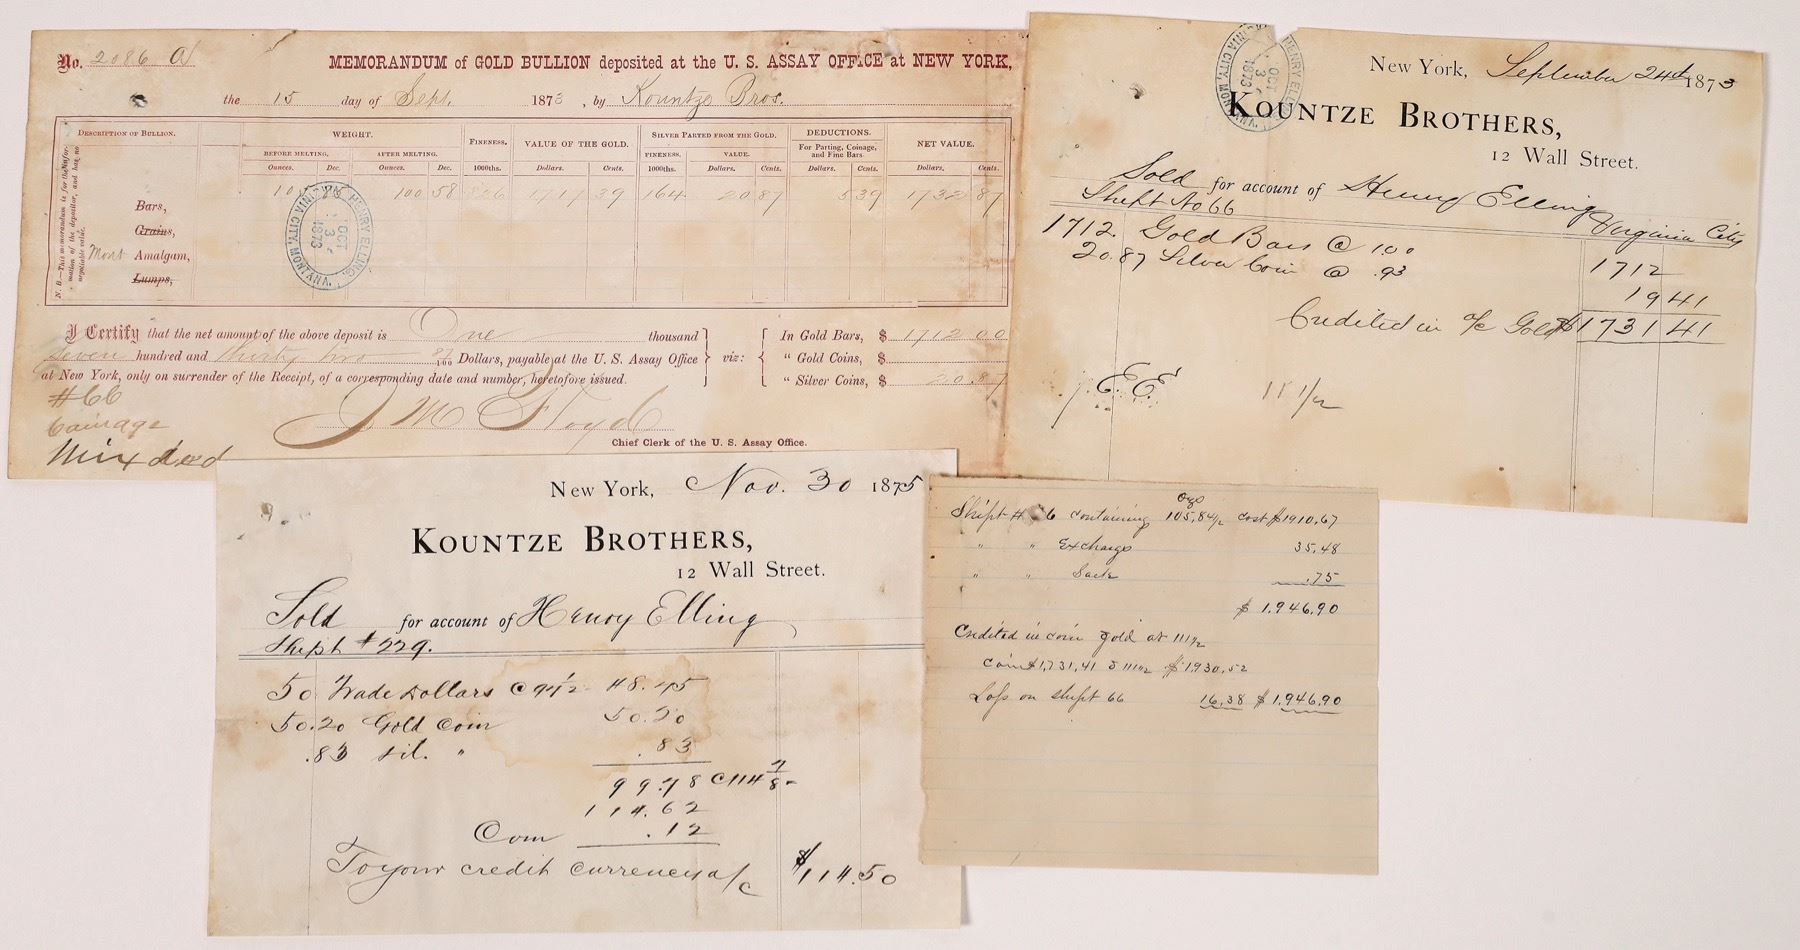 No. 2086
MEMORANDUM of GOLD BULLION deposited at the U. S. ASSAY OFFICE at NEW YORK,
the 15 day of Sept. 1873, by Kountze Bros.
DESCRIPTION OF BULLION. WEIGHT. FINENESS. VALUE OF THE GOLD. SILVER PARTED FROM THE GOLD. DEDUCTIONS. NET VALUE.
BEFORE MELTING. AFTER MELTING. FINENESS. VALUE. For Parting, Coinage, and Fine Bars.
Ounces. Dec. Ounces. Dec. 1000ths. Dollars. Cents. 1000ths. Dollars. Cents. Dollars. Cents. Dollars. Cents.
100 58 1717 39 164 20 87 5 39 1732 87
N. B.—This memorandum is for the information of the depositor, and has no negotiable value.
Bars,
Grains,
Mont Amalgam,
Lumps,
HENRY ELLING, VIRGINIA CITY, MONTANA.
OCT
3
1873
I Certify that the net amount of the above deposit is One thousand
Seven hundred and thirty two 87/100 Dollars, payable at the U. S. Assay Office
at New York, only on surrender of the Receipt, of a corresponding date and number, heretofore issued.
viz:
In Gold Bars, $ 1712 00
" Gold Coins, $
" Silver Coins, $ 20.87
#66
Coinage
J M Floyd
Chief Clerk of the U. S. Assay Office.
New York, September 24th 1873
HENRY ELLING, VIRGINIA CITY, MONTANA.
OCT
3
1873
KOUNTZE BROTHERS,
12 Wall Street.
Sold for account of Henry Elling
Shipt No 66 Virginia City
1712. Gold Bars @ 100 1712
20.87 Silver Coin @ .93 19 41
Credited in a/c Gold $1731 41
E. E. 11 1/2
New York, Nov. 30 1875
KOUNTZE BROTHERS,
12 Wall Street.
Sold for account of Henry Elling
Shipt #229.
50 Trade Dollars @ 48.45
50.20 Gold Coin 50.20
.83 sil. " .83
99.48 @ 114 7/8
114.62
Com .12
To your credit currency a/c $114.50
Shipt # 66 containing 105,84 1/2 ozs cost $1910,67
" " Exchange 35.48
" " Sack .75
$ 1,946,90
Credited in coin gold at 111 1/2
Coin $1,731.41 @ 111 1/2 $1,930,52
Loss on shipt 66 16,38 $1,946,90